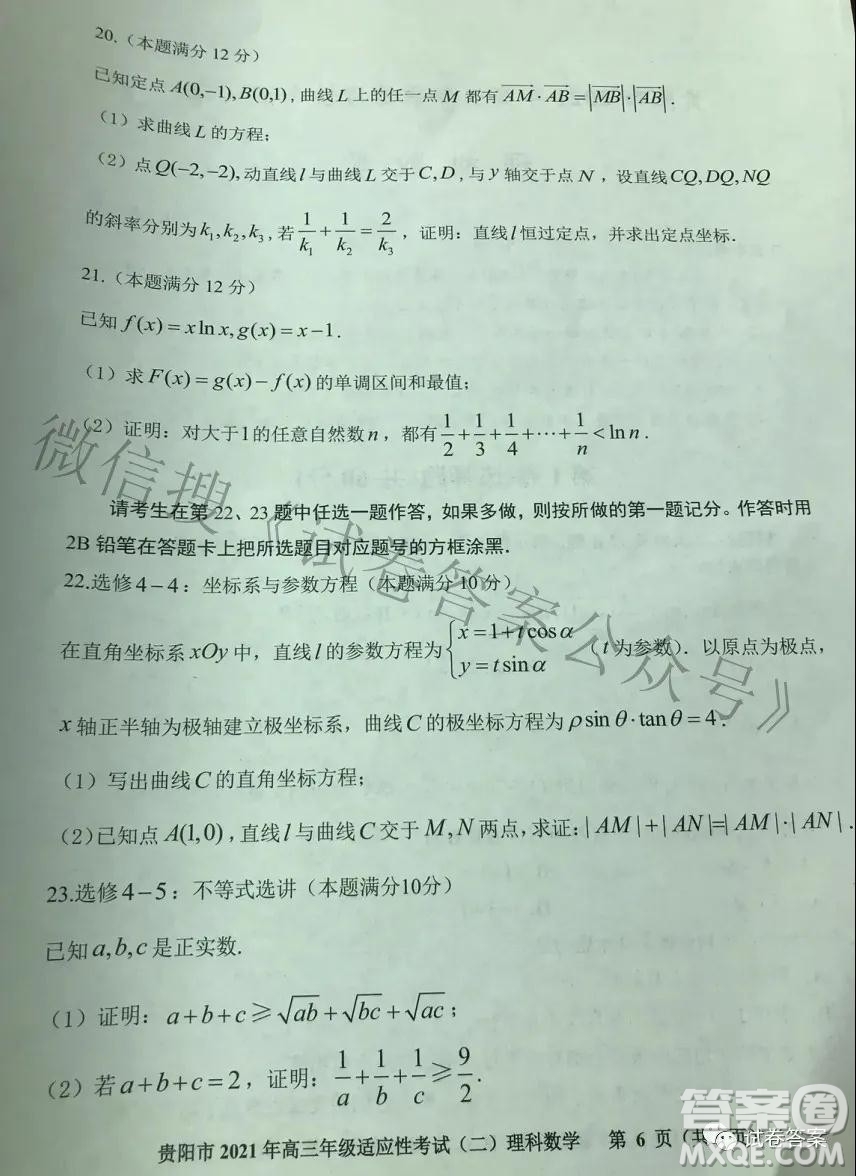 20.（本题满分 12 分）
已知定点 A(0,−1), B(0,1) , 曲线 L 上的任一点 M 都有 \overrightarrow{AM}·\overrightarrow{AB}=|\overrightarrow{MB}|·|\overrightarrow{AB}| .
（1）求曲线 L 的方程;
（2）点 Q(−2,−2), 动直线 l 与曲线 L 交于 C, D , 与 y 轴交于点 N ，设直线 CQ, DQ, NQ
的斜率分别为 k₁, k₂, k₃ , 若 1/k₁ + 1/k₂ = 2/k₃ ，证明：直线 l 恒过定点，并求出定点坐标.
21.（本题满分 12 分）
已知 f(x)=x ln x, g(x)=x−1.
（1）求 F(x)=g(x)−f(x) 的单调区间和最值;
（2）证明：对大于 1 的任意自然数 n ，都有 1/2+1/3+1/4+⋯+1/n<ln n .
请考生在第 22、23 题中任选一题作答，如果多做，则按所做的第一题记分。作答时用
2B 铅笔在答题卡上把所选题目对应题号的方框涂黑.
22.选修 4－4：坐标系与参数方程（本题满分 10 分）
在直角坐标系 xOy 中，直线 l 的参数方程为 {x=1+t cos α, y=t sin α （t 为参数）. 以原点为极点，
x 轴正半轴为极轴建立极坐标系，曲线 C 的极坐标方程为 ρ sin θ·tan θ=4 .
（1）写出曲线 C 的直角坐标方程;
（2）已知点 A(1,0) , 直线 l 与曲线 C 交于 M, N 两点, 求证: | AM |+| AN |=| AM |·| AN | .
23.选修 4－5：不等式选讲（本题满分10分）
已知 a,b,c 是正实数.
（1）证明：a+b+c⩾√ab+√bc+√ac ;
（2）若 a+b+c=2，证明：1/a+1/b+1/c⩾9/2.
贵阳市 2021 年高三年级适应性考试（二）理科数学 第 6 页（共 页
微信搜《试卷答案公众号》
试卷答案
答案圈
MXQE.COM